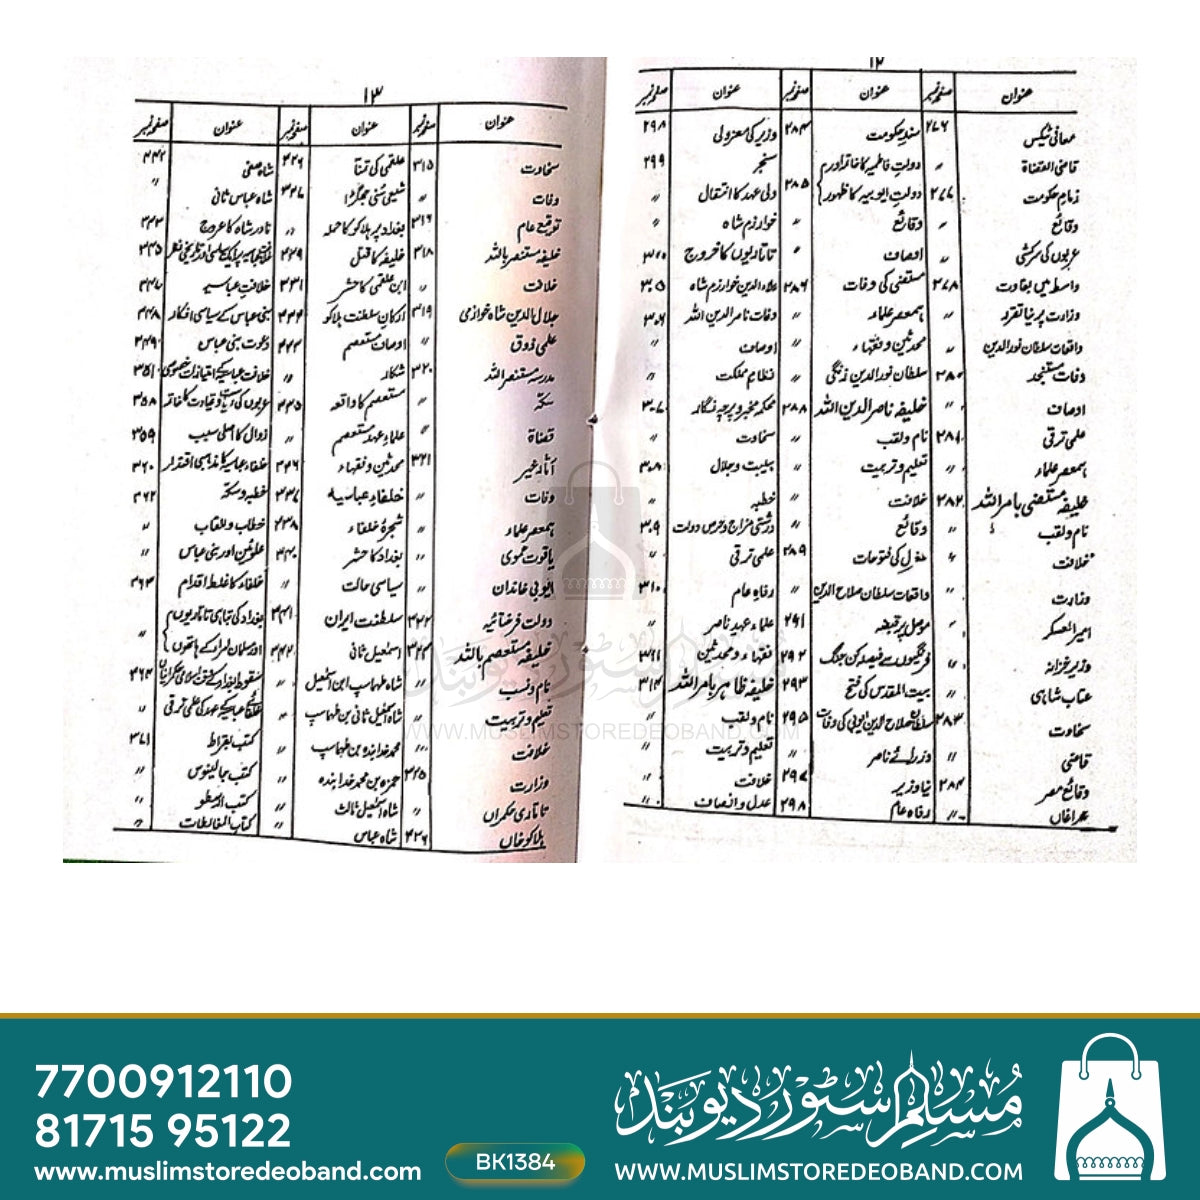 ۱۲
عنوان صفحہ نمبر عنوان صفحہ نمبر عنوان صفحہ نمبر
معافی ٹیکس ۲۷۶ سندِ حکومت ۲۸۴ وزیر کی معزولی ۲۹۸
قاضی القضاۃ ״ دولتِ فاطمیہ کا خاتمہ اور ״ سنجر ۲۹۹
زمامِ حکومت ۲۷۷ دولتِ ایوبیہ کا ظہور ۲۸۵ ولی عہد کا انتقال ״
وقائع ״ وقائع ״ خوارزم شاہ ״
عربوں کی سرکشی ״ اوصاف ״ تاتاریوں کا خروج
واسط میں بغاوت ۲۷۸ مستضئی کی وفات ۲۸۶ علاء الدین خوارزم شاہ ۳۰۵
وزارت پر نیا تقرر ״ ہمعصر علماء ״ وفات ناصر الدین اللہ ۳۰۶
واقعات سلطان نور الدین ״ محدثین و فقہاء ״ اوصاف ״
وفات مستنجد ۲۸۰ سلطان نور الدین زنگی ״ نظام مملکت ״
اوصاف ״ خلیفہ ناصر الدین اللہ ۲۸۸ محکمہ مخبر و پرچہ نگار ۳۰۷
علمی ترقی ۲۸۱ نام و لقب ״ سخاوت ״
ہمعصر علماء ״ تعلیم و تربیت ״ ہیبت و جلال ۳۰۸
خلیفہ مستضئی بامر اللہ ۲۸۲ خلافت ״ خطبہ ״
نام و لقب ״ وقائع ״ درشتی مزاج و حرص دولت ۳۰۹
خلافت ״ مغل کی فتوحات ۲۸۹ علمی ترقی ״
وزارت ״ واقعات سلطان صلاح الدین ״ رفاہِ عام ۳۱۰
امیر العسکر ״ موصل پر قبضہ ۲۹۱ علماء عہد ناصر ״
وزیر خزانہ ״ فرنگیوں سے فیصلہ کن جنگ ۲۹۲ فقہاء و محدثین
عتاب شاہی ״ بیت المقدس کی فتح ۲۹۳ خلیفہ ظاہر بامر اللہ ۳۱۴
سخاوت ۲۸۳ سلطان صلاح الدین ایوبی کی وفات ۲۹۵ نام و لقب ״
قاضی ״ وزرائے ناصر ״ تعلیم و تربیت ״
وقائع مصر ۲۸۴ نیا وزیر ۲۹۷ خلافت ״
״ رفاہ عام ۲۹۸ عدل و انصاف ״
۱۳
عنوان صفحہ نمبر عنوان صفحہ نمبر عنوان صفحہ نمبر
سخاوت ۳۱۵ علقمی کی تمنا ۳۲۶ شاہ صفی ۳۴۲
وفات ״ شیعی سنی جھگڑا ۳۲۷ شاہ عباس ثانی ״
توقیع عام ۳۱۶ بغداد پر ہلاکو کا حملہ ״ نادر شاہ کا عروج ۳۴۳
خلیفہ مستنصر باللہ ۳۱۸ خلیفہ کا قتل ۳۲۹ ۳۴۵
خلافت ״ ابن علقمی کا حشر ۳۳۱ خلافت عباسیہ ۳۴۷
جلال الدین شاہ خوارزمی ۳۱۹ ارکانِ سلطنت ہلاکو بنی عباس کے سیاسی افکار ۳۴۸
علمی ذوق ״ اوصاف مستعصم دعوت بنی عباس ۳۴۹
مدرسہ مستنصر اللہ ۳۲۰ شکار ״ خلافت عباسیہ کے امتیازات خصوصی ۳۵۱
سکہ ״ مستعصم کا واقعہ ۳۳۵ ۳۵۸
قضاۃ ״ علماء عہد مستعصم ״ زوال کا اصلی سبب ۳۵۹
آثار خیر ۳۲۱ محدثین و فقہاء ۳۳۶ خلفاء عباسیہ کا مذہبی اقتدار ۳۶۰
وفات ״ خلفاءِ عباسیہ ۳۳۷ خطبہ و سکہ ۳۶۲
ہمعصر علماء ״ شجرۂ خلفاء ۳۳۸ خطاب و القاب ״
یاقوت حموی ״ بغداد کا حشر ۳۴۰ علوئین اور بنی عباس ״
ایوبی خاندان ״ سیاسی حالت ״ خلفاء کا غلط اقدام ۳۶۳
دولت فرغانیہ ۳۲۲ سلطنت ایران ۳۴۱ بغداد کی تباہی تاتاریوں
خلیفہ مستعصم باللہ ۳۲۳ اسمٰعیل ثانی ۳۴۲ اور مسلمان امراء کے ہاتھوں ״
نام و نسب ״ شاہ طہماسپ ابن اسمٰعیل ״ ۳۶۴
تعلیم و تربیت ״ شاہ اسمٰعیل ثانی بن طہماسپ ״ ״
خلافت ״ محمد خدابندہ بن طہماسپ ״ کتب بقراط ۳۷۱
وزارت ۳۲۵ حمزہ بن محمد خدابندہ ״ کتب جالینوس ״
تاتاری حکمراں ״ شاہ اسمٰعیل ثالث ״ کتب ارسطو ״
ہلاکو خاں ۳۲۶ شاہ عباس ״ کتاب المغالطات ״
مسلم سٹور دیوبند
WWW.MUSLIMSTOREDEOBAND.COM
7700912110
81715 95122
www.muslimstoredeoband.com
BK1384
مسلم سٹور دیوبند
WWW.MUSLIMSTOREDEOBAND.COM